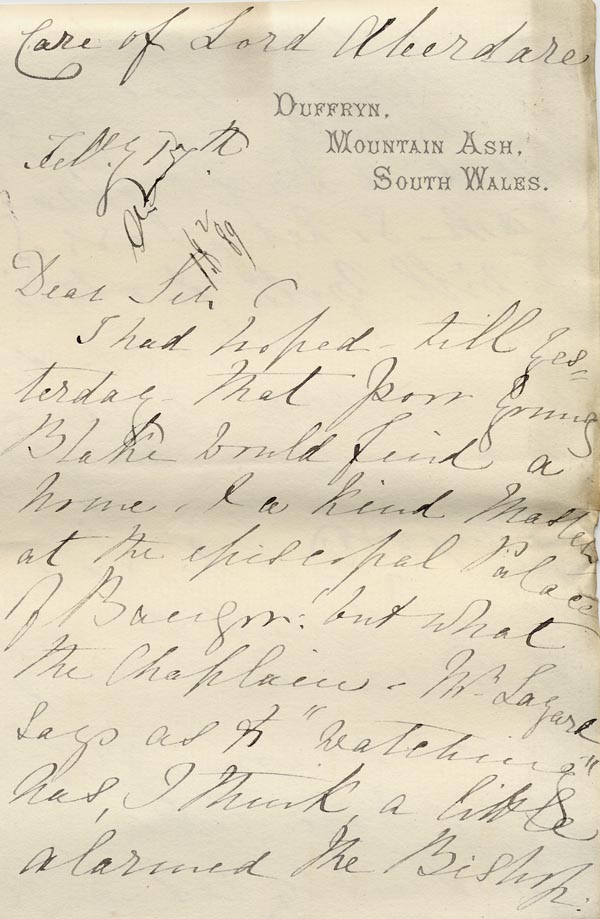 Care of Lord Aberdare
DUFFRYN,
MOUNTAIN ASH,
SOUTH WALES.
Feby 17th
Dear Sir
I had hoped - till yes=
terday - that poor young
Blake would find a
home, & a kind Master
at the episcopal Palace
of Bangor: but what
the Chaplain - Mr
says as to "watching"
has, I think, a little
alarmed the Bishop.